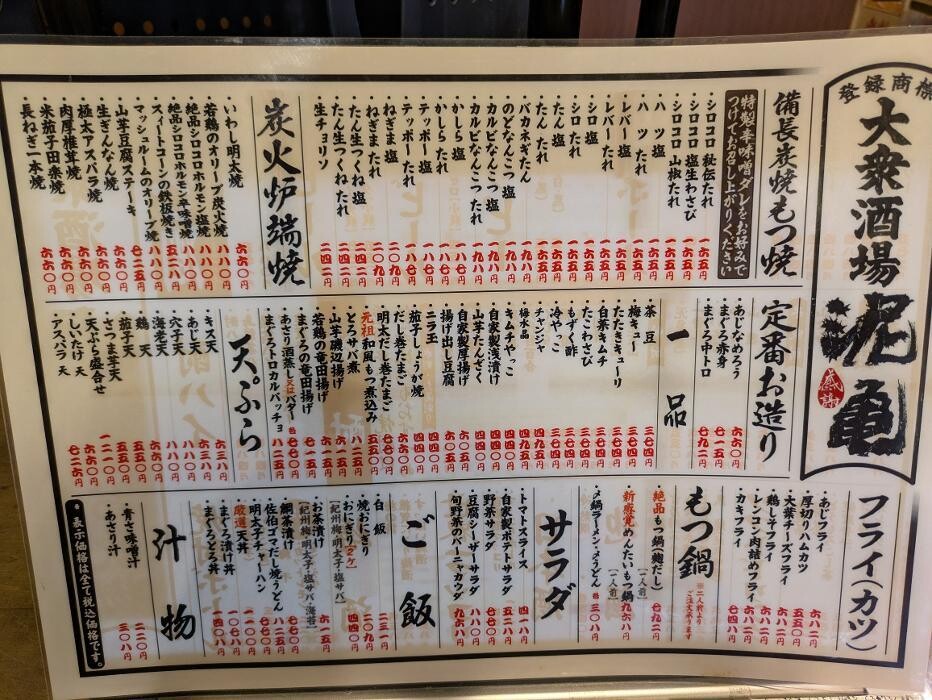 登録商標
大衆酒場
泥亀
感謝
備長炭焼もつ焼
特製辛味噌ダレをお好みで
つけてお召し上がりください
・シロコロ 秘伝たれ 一六五円
・シロコロ 塩生わさび 一六五円
・シロコロ 山椒たれ 一六五円
・ハツ 塩 一六五円
・ハツ たれ 一六五円
・レバー 塩 一六五円
・レバー たれ 一六五円
・シロ 塩 一六五円
・シロ たれ 一六五円
・たん 塩 一六五円
・たん たれ 一六五円
・バカネギたん 一九八円
・のどなんこつ 塩 一九八円
・カルビなんこつ 塩 一九八円
・カルビなんこつ たれ 一九八円
・かしら 塩 一八七円
・かしら たれ 一八七円
・テッポー 塩 一八七円
・テッポー たれ 一八七円
・ねぎま 塩 二〇九円
・ねぎま たれ 二〇九円
・たん生つくね 塩 二四二円
・たん生つくね たれ 二四二円
・生チョリソ 二四二円
炭火炉端焼
・いわし明太焼 六六〇円
・若鶏のオリーブ炭火焼 八八〇円
・絶品シロコロホルモン塩焼 八八〇円
・絶品シロコロホルモン辛味噌焼 八八〇円
・スイートコーンの鉄板焼き 五二八円
・マッシュルームのオリーブ焼 八八〇円
・山芋豆腐ステーキ 七一五円
・生ぎんなん焼 六六〇円
・極太アスパラ焼 六六〇円
・肉厚椎茸焼 六六〇円
・米茄子田楽焼 六六〇円
・長ねぎ一本焼 六六〇円
定番お造り
・あじなめろう 六六〇円
・まぐろ赤身 七一五円
・まぐろ中トロ 七九二円
一品
・茶豆 三七四円
・梅きゅー 三七四円
・たたききゅーり 三七四円
・白菜キムチ 三七四円
・たこわさび 三七四円
・もずく酢 三七四円
・冷やっこ 三七四円
・チャンジャ 四九五円
・梅水晶 四九五円
・キムチやっこ 四四〇円
・自家製浅漬け 四四〇円
・山芋たんざく 四四〇円
・自家製厚揚げ 六〇五円
・揚げ出し豆腐 六〇五円
・ニラ玉
・茄子しょうが焼
・だし巻たまご
・明太だし巻たまご
・元祖 和風もつ煮込み 五五〇円
・とろサバ煮 八二五円
・山芋磯辺揚げ 六一五円
・若鶏の竜田揚げ
・まぐろの竜田揚げ
・あさり酒蒸し又はバター 各七七〇円
・まぐろトロカルパッチョ 八八〇円
天ぷら
・キス天 六三八円
・あじ天 六三八円
・穴子天 八八〇円
・海老天 八八〇円
・鶏天 六六〇円
・茄子天 五五〇円
・さつま芋天 五五〇円
・天ぷら盛合せ 一二一〇円
・しいたけ天 六六〇円
・アスパラ天 七二六円
フライ(カツ)
・あじフライ 六八二円
・厚切りハムカツ 五五〇円
・大葉チーズフライ 六八二円
・鶏しそフライ 六八二円
・レンコン肉詰めフライ 六八二円
・カキフライ 七四八円
もつ鍋
※二人前より
ご注文承ります
・絶品もつ鍋(麹だし)
(一人前) 七九二円
・新感覚めんたいもつ鍋
(一人前) 九六八円
・〆鍋ラーメン・〆うどん 各三〇八円
サラダ
・トマトスライス 四一八円
・自家製ポテトサラダ 五二八円
・野菜サラダ 七七〇円
・豆腐シーザーサラダ 八八〇円
・旬野菜のバーニャカウダ 九六八円
ご飯
・白飯 二三一円
・焼おにぎり 二〇九円
・おにぎり(2ケ) 四四〇円
[紀州梅・明太子・塩サバ]
・お茶漬け 六一五円
[紀州梅・明太子・塩サバ・海苔]
・鯛茶漬け 七七〇円
・佐伯ゴマだし焼うどん 八二五円
・明太子チャーハン 七七〇円
・厳選天丼 一〇七八円
・まぐろ漬け丼 一一〇〇円
・まぐろとろ丼 一四〇八円
汁物
・青さ味噌汁 二二〇円
・あさり汁 三〇八円
＊表示価格は全て税込価格です。